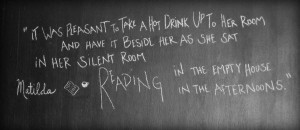 "IT WAS PLEASANT TO TAKE A HOT DRINK UP TO HER ROOM
AND HAVE IT BESIDE HER AS SHE SAT
IN HER SILENT ROOM
READING IN THE EMPTY HOUSE
IN THE AFTERNOONS."
Matilda